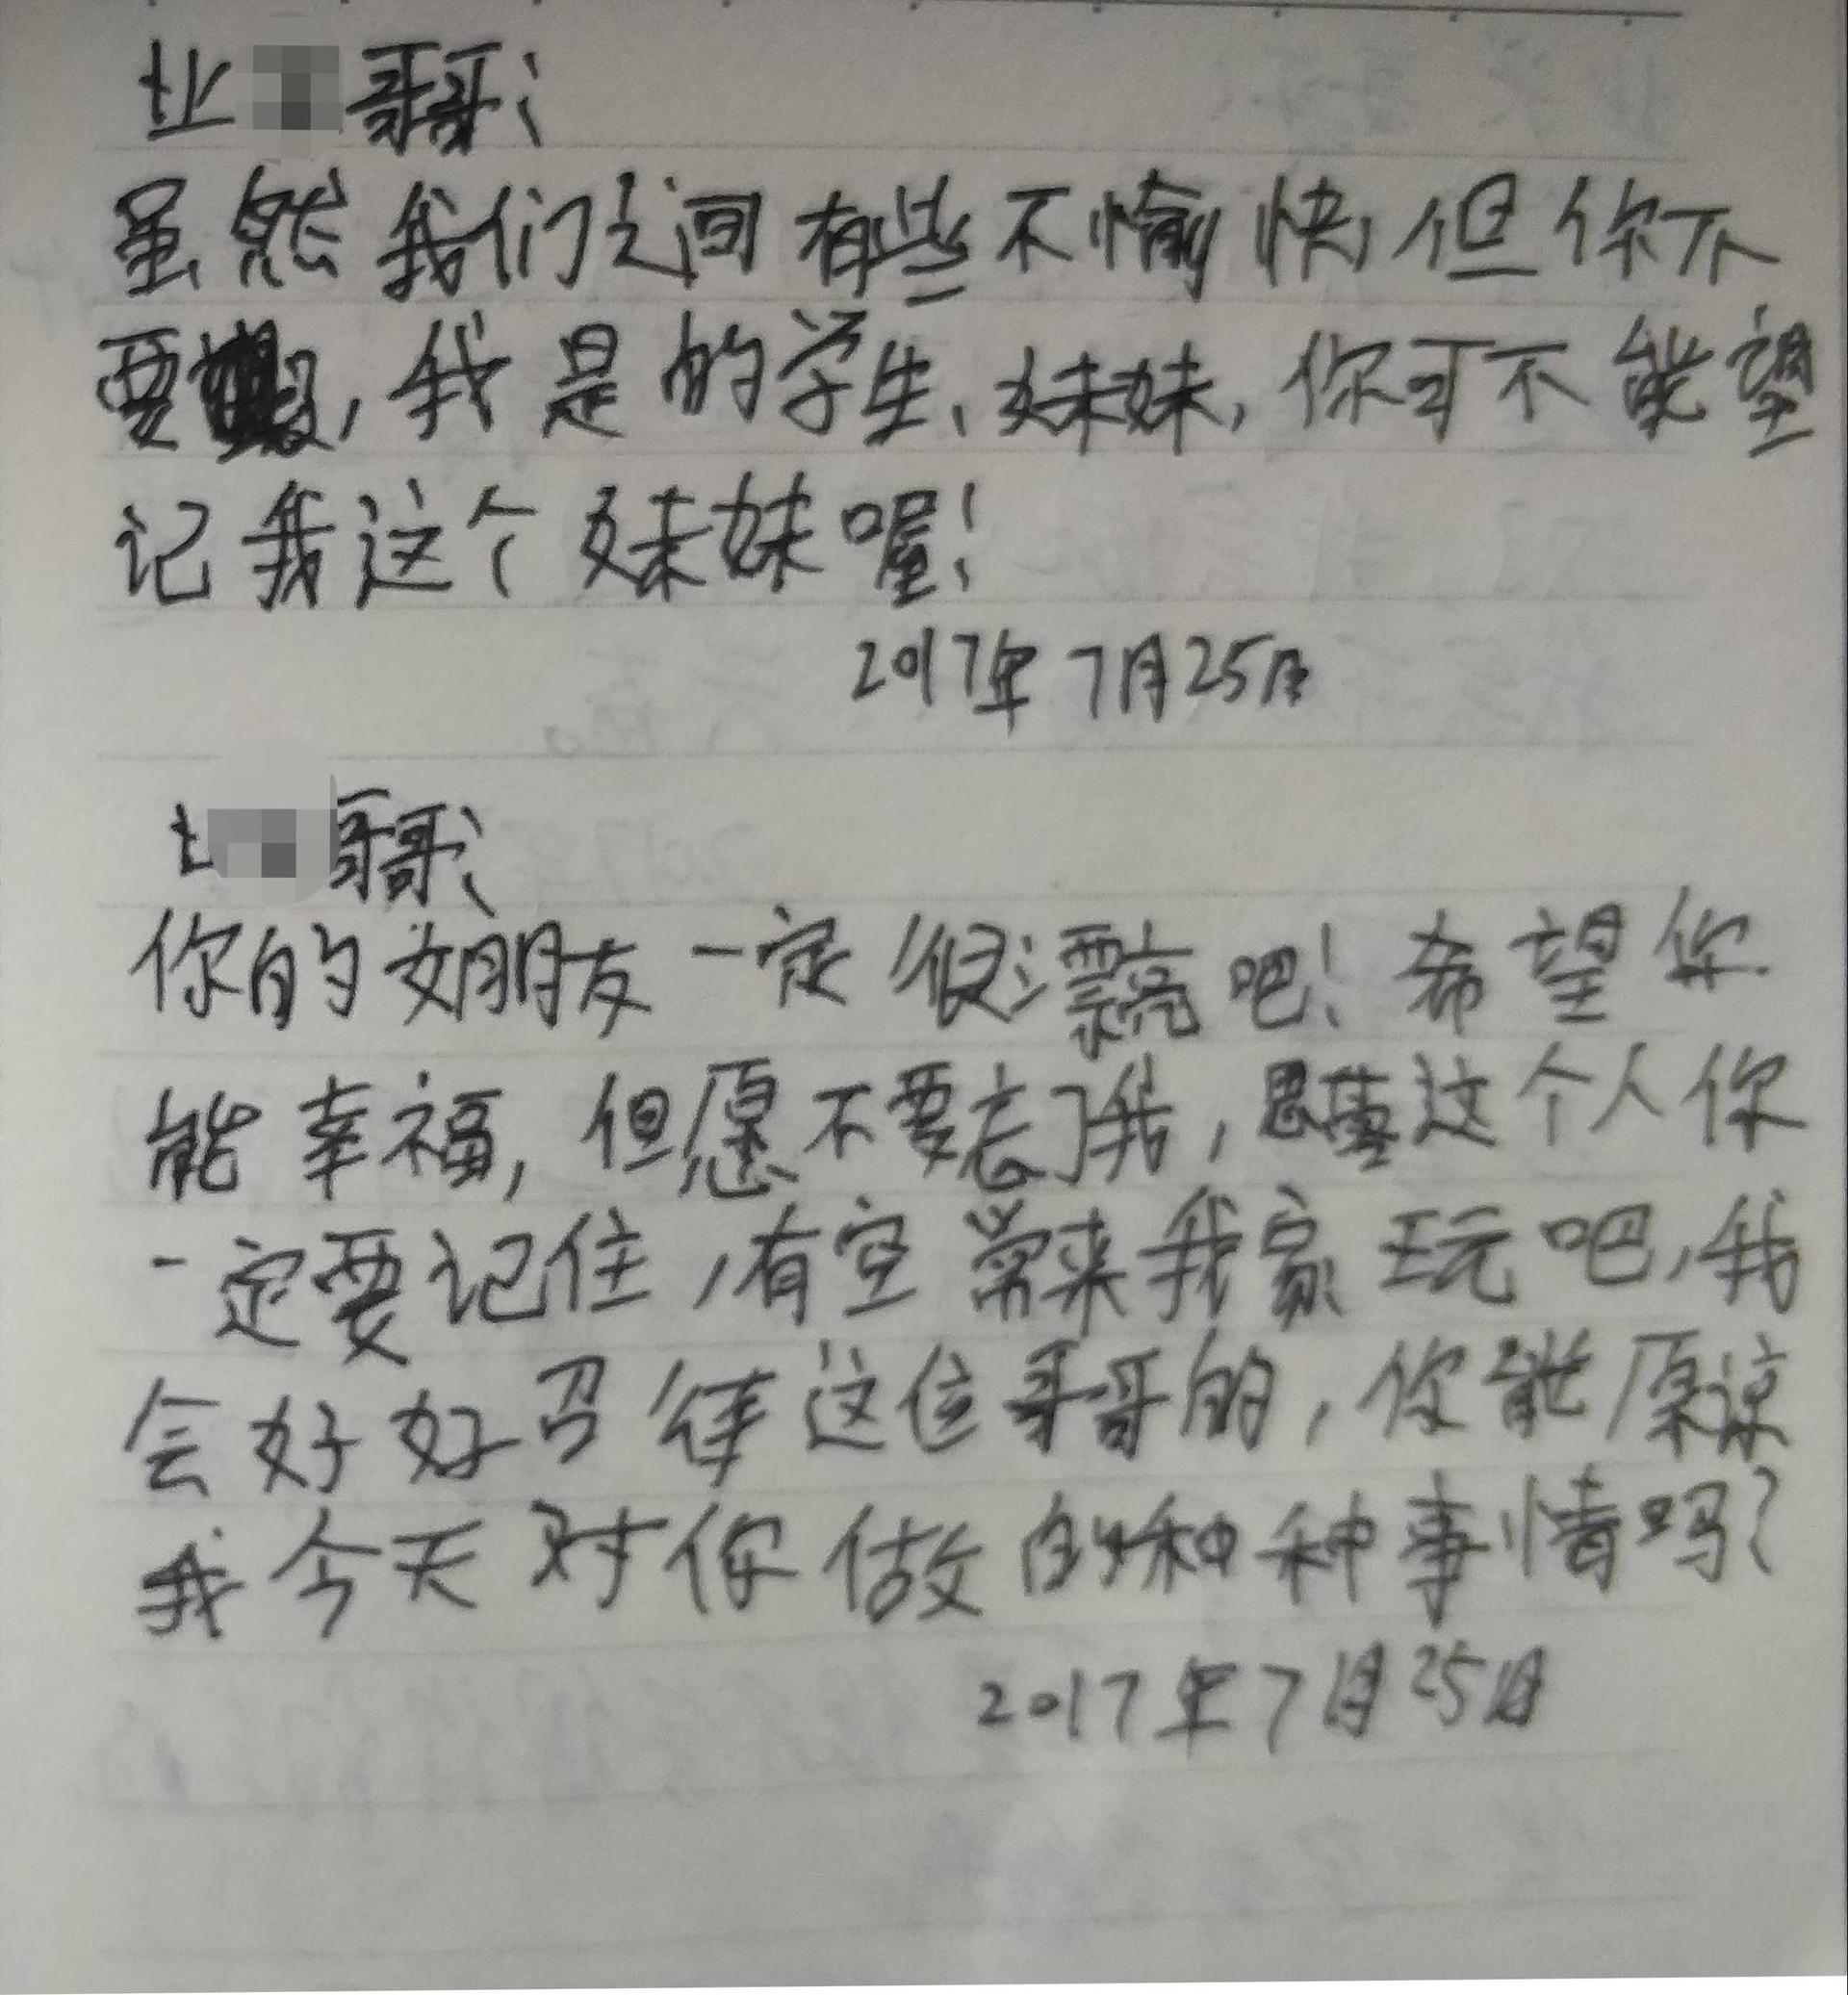 哥哥：
虽然我们之间有些不愉快，但你不
要，我是的学生、妹妹，你可不能望
记我这个妹妹喔！
2017年7月25日
哥哥：
你的女朋友一定很漂亮吧！希望你
能幸福，但愿不要忘了我，思慧这个人你
一定要记住，有空常来我家玩吧，我
会好好召待这位哥哥的，你能原谅
我今天对你做的种种事情吗？
2017年7月25日